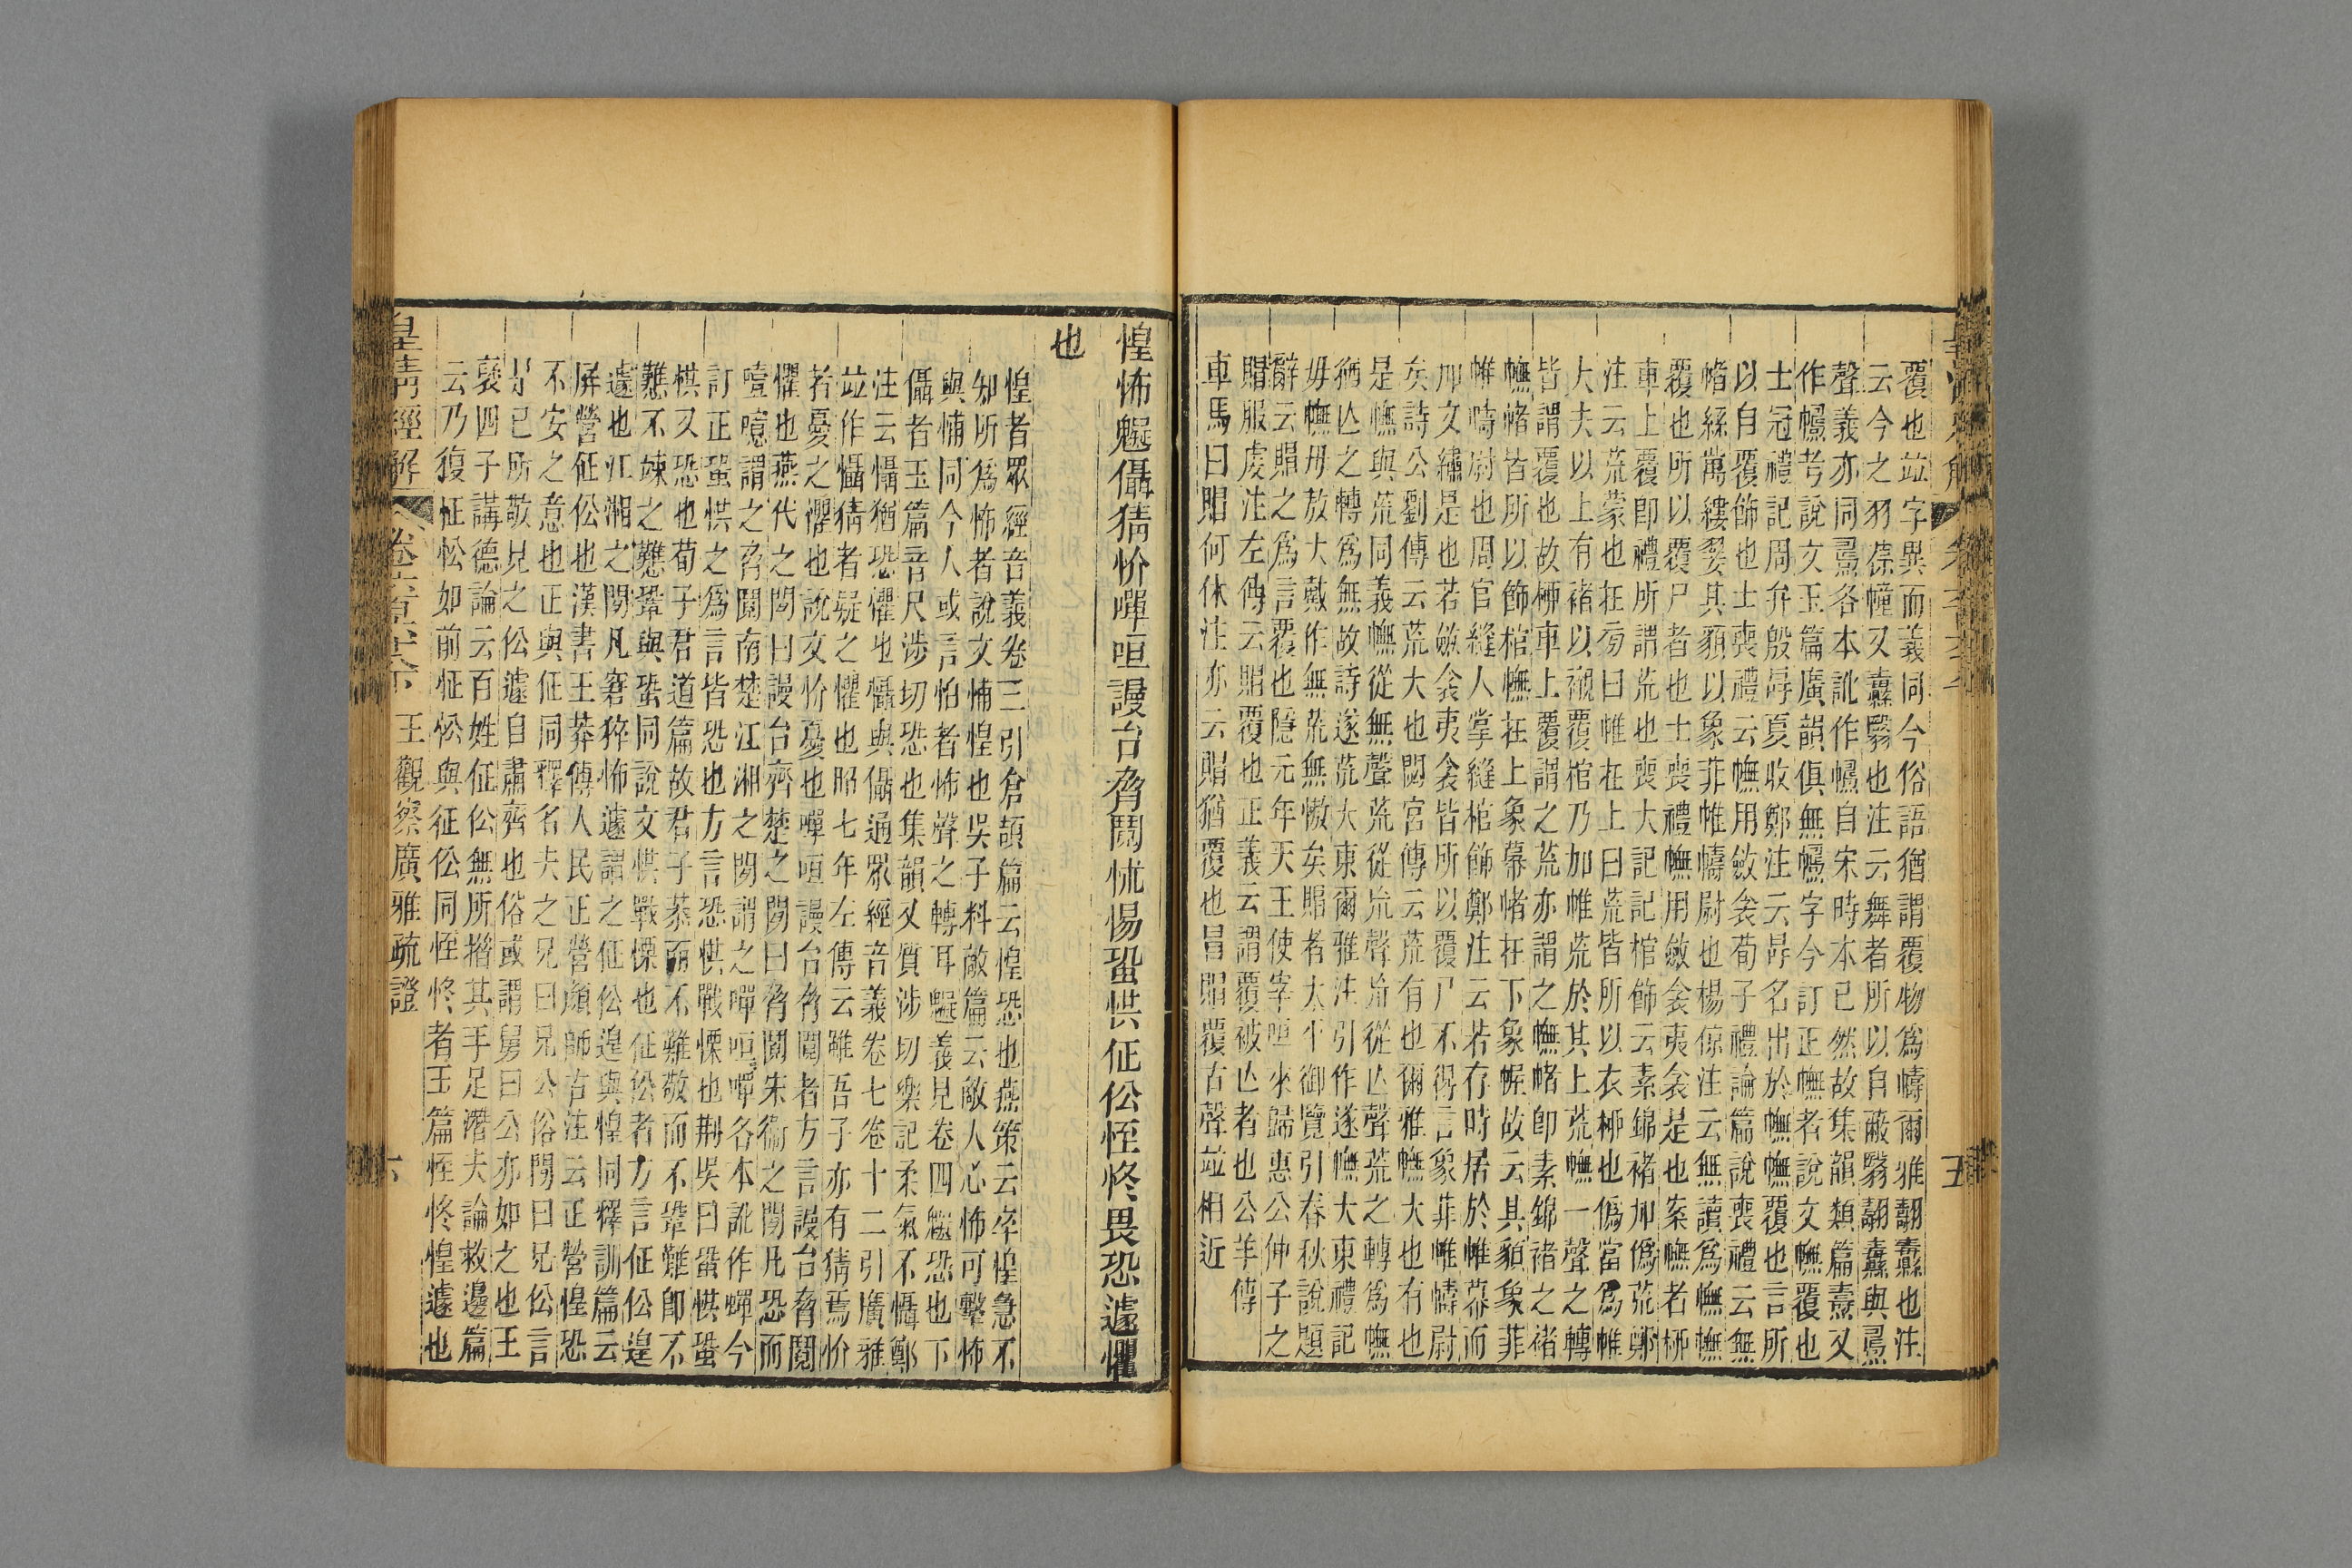 覆也竝字異而義同今俗語猶謂覆物爲幬爾雅翿纛也注
云今之羽葆幢又纛翳也注云舞者所以自蔽翳翿纛與翿
聲義亦同翿各本訛作幰自宋時本已然故集韻類篇燾又
作幰考說文玉篇廣韻俱無幰字今訂正幠者說文幠覆也
士冠禮記周弁殷冔夏收鄭注云冔名出於幠幠覆也言所
以自覆飾也士喪禮云幠用斂衾荀子禮論篇說喪禮云無
帾絲歶縷翣其䫉以象菲帷幬尉也楊倞注云無讀爲幠幠
覆也所以覆尸者也士喪禮幠用斂衾夷衾是也案幠者柳
車上覆卽禮所謂荒也喪大記記棺飾云素錦褚加僞荒鄭
注云荒蒙也在旁曰帷在上曰荒皆所以衣柳也僞當爲帷
大夫以上有褚以襯覆棺乃加帷荒於其上荒幠一聲之轉
皆謂覆也故柳車上覆謂之荒亦謂之幠帾卽素錦褚之褚
幠帾皆所以飾棺幠在上象幕帾在下象幄故云其䫉象菲
帷幬尉也周官縫人掌縫棺飾鄭注云若存時居於帷幕而
加文繡是也若斂衾夷衾皆所以覆尸不得言象菲帷幬尉
矣詩公劉傳云荒大也閟宮傳云荒有也爾雅幠大也有也
是幠與荒同義幠從無聲荒從㠩聲㠩從亾聲荒之轉爲幠
猶亾之轉爲無故詩遂荒大東爾雅注引作遂幠大東禮記
毋幠毋敖大戴作無荒無慠矣賵者太平御覽引春秋說題
辭云賵之爲言覆也隱元年天王使宰咺來歸惠公仲子之
賵服虔注左傳云賵覆也正義云謂覆被亾者也公羊傳
車馬曰賵何休注亦云賵猶覆也冒賵覆古聲竝相近
五
惶怖䰯儑猜忦㘊咺謾台脅鬩怵惕蛩㤨怔伀恎㤏畏恐遽懼
也
惶者眾經音義卷三引倉頡篇云惶恐也燕策云卒惶急不
知所爲怖者說文悑惶也吳子料敵篇云敵人心怖可擊怖
與悑同今人或言怕者怖聲之轉耳䰯義見卷四䰯恐也下
儑者玉篇音尺涉切恐也集韻又質涉切樂記柔氣不懾鄭
注云懾猶恐懼也懾與儑通眾經音義卷七卷十二引廣雅
竝作懾猜者疑之懼也昭七年左傳云雖吾子亦有猜焉忦
者憂之懼也說文忦憂也㘊咺謾台脅鬩者方言謾台脅鬩
懼也燕代之閒曰謾台齊楚之閒曰脅鬩宋衞之閒凡恐而
噎噫謂之脅鬩南楚江湘之閒謂之㘊咺㘊各本訛作蟬今
訂正蛩㤨之爲言皆恐也方言恐㤨戰慄也荆吳曰蛩㤨蛩
㤨又恐也荀子君道篇故君子恭而不難敬而不鞏難卽不
戁不竦之戁鞏與蛩同說文㤨戰慄也怔伀者方言怔伀遑
遽也江湘之閒凡窘猝怖遽謂之怔伀遑與惶同釋訓篇云
屏營怔伀也漢書王莽傳人民正營顏師古注云正營惶恐
不安之意也正與怔同釋名夫之兄曰兄公俗閒曰兄伀言
是已所敬見之伀遽自肅齊也俗或謂舅曰公亦如之也王
襃四子講德論云百姓怔伀無所措其手足潛夫論救邊篇
云乃復怔忪如前怔忪與怔伀同恎㤏者玉篇恎㤏惶遽也
皇清經解
卷六百六十六下 王觀察廣雅疏證
六